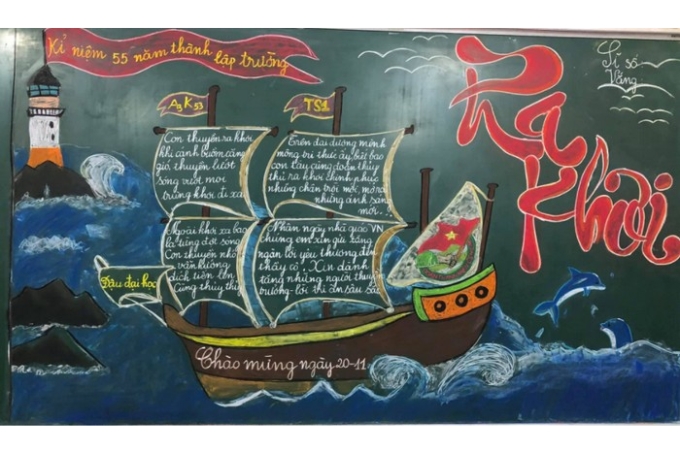 Kỉ niệm 55 năm thành lập trường
Sĩ số
Vắng
Ra
Khơi
A3 K53
TS1
Con thuyền ra khơi
khi cánh buồm căng
gió, thuyền lướt
sóng rười, nơi
trùng khơi đi xa
Trên đại dương mênh
mông tri thức ấy biết bao
con tàu cùng đoàn thủy
thủ ra khơi chinh phục
những chân trời mới, mở ra
những ánh sáng
mới...
Ngoài khơi xa bao
la từng đợt sóng
Con thuyền nhỏ
vẫn hướng
đích tiến lên
Cùng thủy thủ
Nhân ngày nhà giáo VN
Chúng em xin gửi vàng
ngàn lời yêu thương đến
thầy cô. Xin dành
tặng những người thuyền
trưởng lời tri ân sâu sắc
Đậu đại học
Chào mừng ngày 20-11